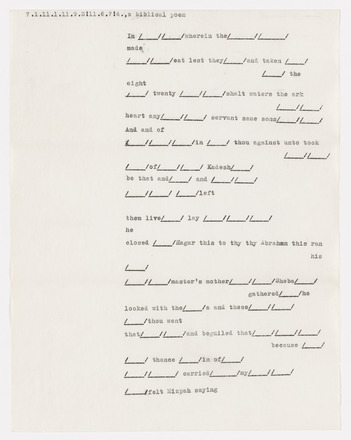 7.1.11.1.11.9.3!11.6.7!4.,a biblical poem
In /____/____/wherein the____/____/
made
/____/____/eat lest they____/and taken /____/
/____/ the
eight
/____/ twenty /____/____/shalt waters the ark
/____/____/
heart any____/____/ servant sane sons____/____/
And and of
/____/____/____/in /____/ thou against unto took
/____/____/
/____/of____/____/ Kadesh____/
be that and____/ and /____/____/
/____/____/ /____/left
them live____/ lay /____/____/____/
he
closed /____/Hagar this to thy thy Abraham this ran
his
/____/
/____/____/master's mother____/____/Sheba____/
gathered____/he
looked with the____/a and these____/____/
/____/thou went
that____/____/and beguiled that____/____/____/
because /____/
/____/ thence /____/in of____/
/____/____/____/ carried____/my____/____/
/____/felt Mizpah saying